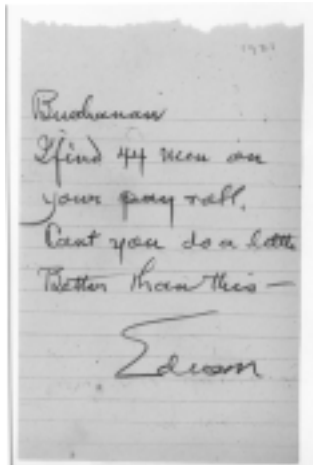 1921
Buchanan
I find 44 men on
your pay roll.
Cant you do a little
Better than this —
Edison